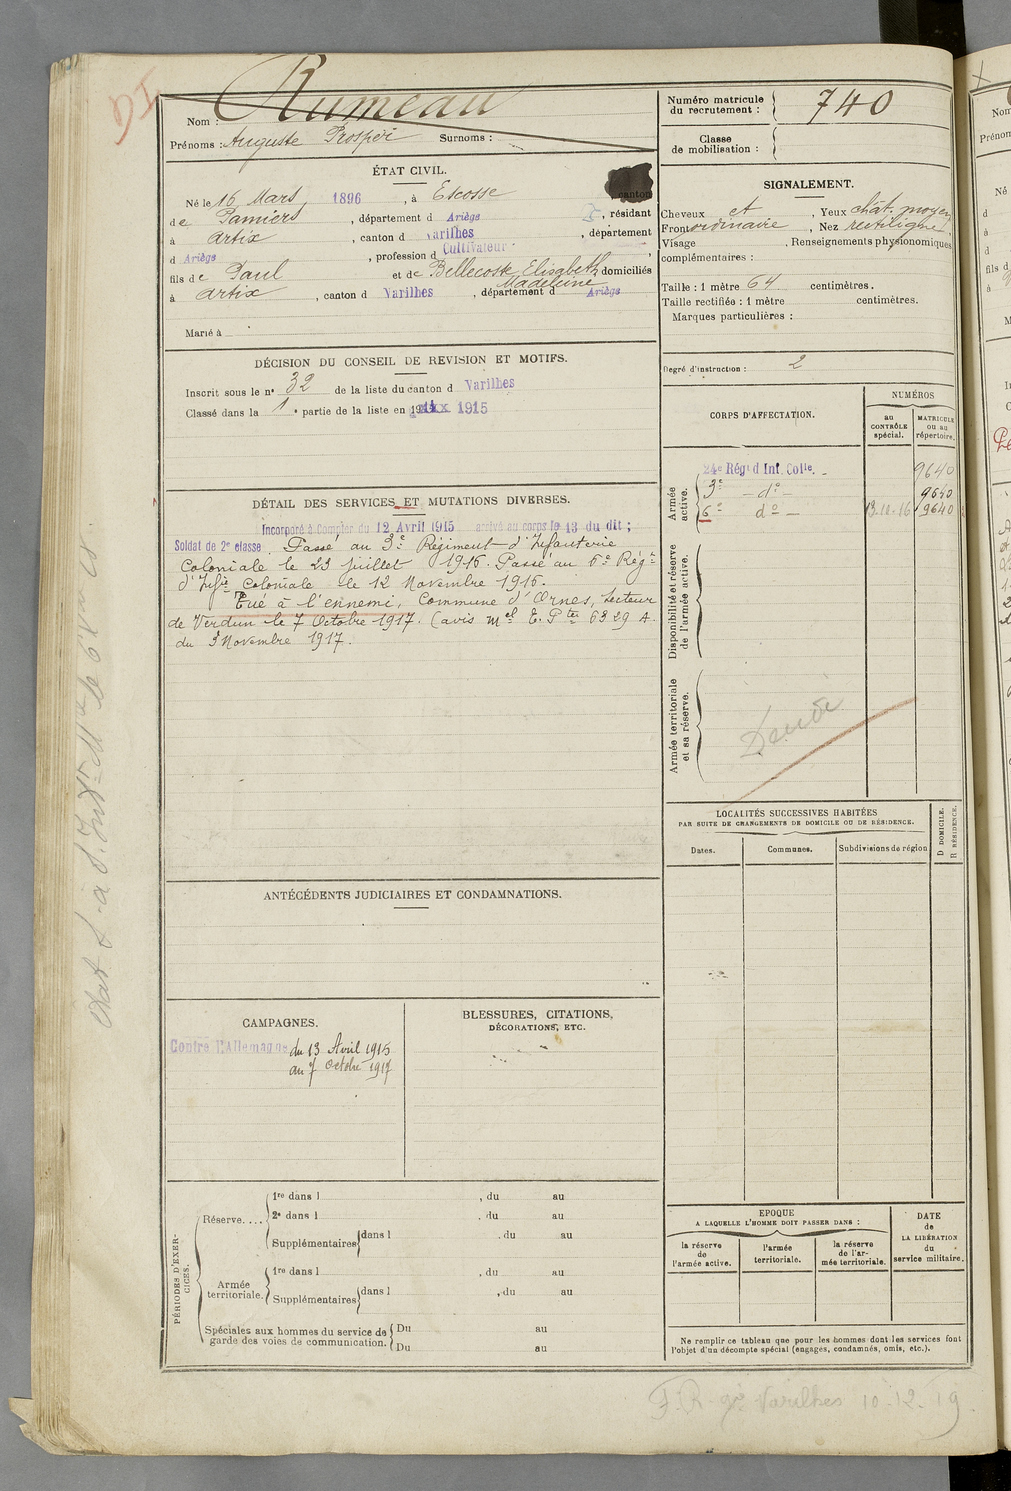 DI
Nom : Rumeau
Prénoms : Auguste Prosper Surnoms :
Numéro matricule du recrutement : 740
Classe de mobilisation :
ÉTAT CIVIL.
Né le 16 Mars 1896, à Escosse canton
de Pamiers, département d Ariège, résidant
à Artix, canton d Varilhes, département
d Ariège, profession d Cultivateur,
fils de Paul et de Bellecoste Elisabeth Madeleine domiciliés
à Artix, canton d Varilhes, département d Ariège
Marié à
SIGNALEMENT.
Cheveux et, Yeux chât. moyen,
Front ordinaire, Nez rectiligne,
Visage, Renseignements physionomiques
complémentaires :
Taille : 1 mètre 64 centimètres.
Taille rectifiée : 1 mètre centimètres.
Marques particulières :
Degré d'instruction : 2
DÉCISION DU CONSEIL DE REVISION ET MOTIFS.
Inscrit sous le n° 32 de la liste du canton d Varilhes
Classé dans la 1e partie de la liste en 1915
CORPS D'AFFECTATION.
NUMÉROS
au CONTRÔLE spécial.
MATRICULE ou au répertoire.
Armée active.
24e Régt d Inf. Colle. 9640
3e - do - 9640
6e do - 13-11-16 9640
Disponibilité et réserve de l'armée active.
Armée territoriale et sa réserve.
DÉTAIL DES SERVICES ET MUTATIONS DIVERSES.
Incorporé à Compter du 12 Avril 1915 arrivé au corps le 13 du dit ;
Soldat de 2e classe. Passé au 3e Régiment d'Infanterie
Coloniale le 23 juillet 1916. Passé au 6e Régt
d'Infie Coloniale le 12 Novembre 1916.
Tué à l'ennemi, Commune d'Ornes, Secteur
de Verdun le 7 Octobre 1917. (avis mel E. Pter 6329 A.
du 3 Novembre 1917.
LOCALITÉS SUCCESSIVES HABITÉES
PAR SUITE DE CHANGEMENTS DE DOMICILE OU DE RÉSIDENCE.
Dates. Communes. Subdivisions de région
D DOMICILE.
R RÉSIDENCE.
ANTÉCÉDENTS JUDICIAIRES ET CONDAMNATIONS.
CAMPAGNES.
Contre l'Allemagne du 13 Avril 1915
au 7 Octobre 1917
BLESSURES, CITATIONS,
DÉCORATIONS, ETC.
PÉRIODES D'EXERCICES.
Réserve....
1re dans l , du au
2e dans l , du au
Supplémentaires dans l , du au
Armée territoriale.
1re dans l , du au
Supplémentaires dans l , du au
Spéciales aux hommes du service de garde des voies de communication.
Du au
Du au
EPOQUE
A LAQUELLE L'HOMME DOIT PASSER DANS :
la réserve de l'armée active.
l'armée territoriale.
la réserve de l'armée territoriale.
DATE de LA LIBÉRATION du service militaire.
Ne remplir ce tableau que pour les hommes dont les services font
l'objet d'un décompte spécial (engagés, condamnés, omis, etc.).
F.R. Varilhes 10.12.19